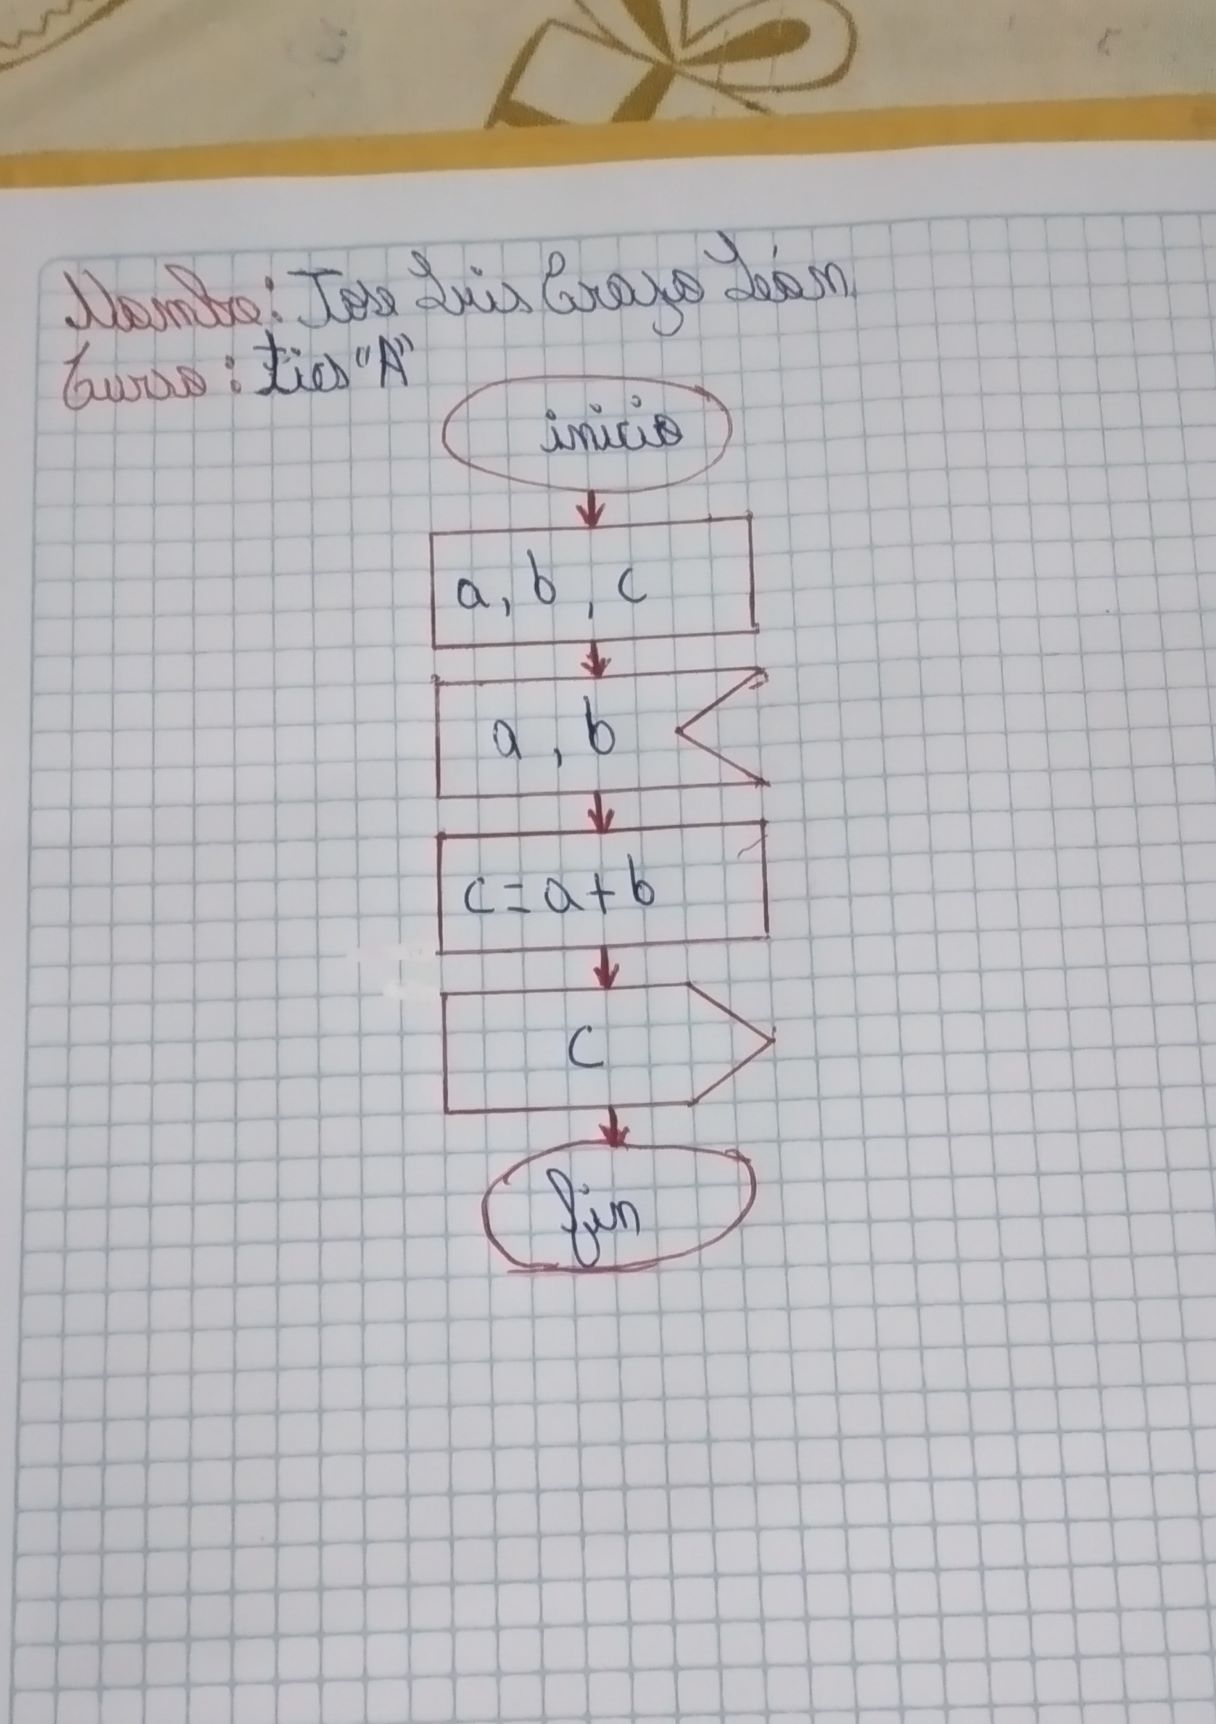 Nombre: Jose Luis Erazo León
Curso: tics "A"
inicio
a, b, c
a, b
c=a+b
c
fin